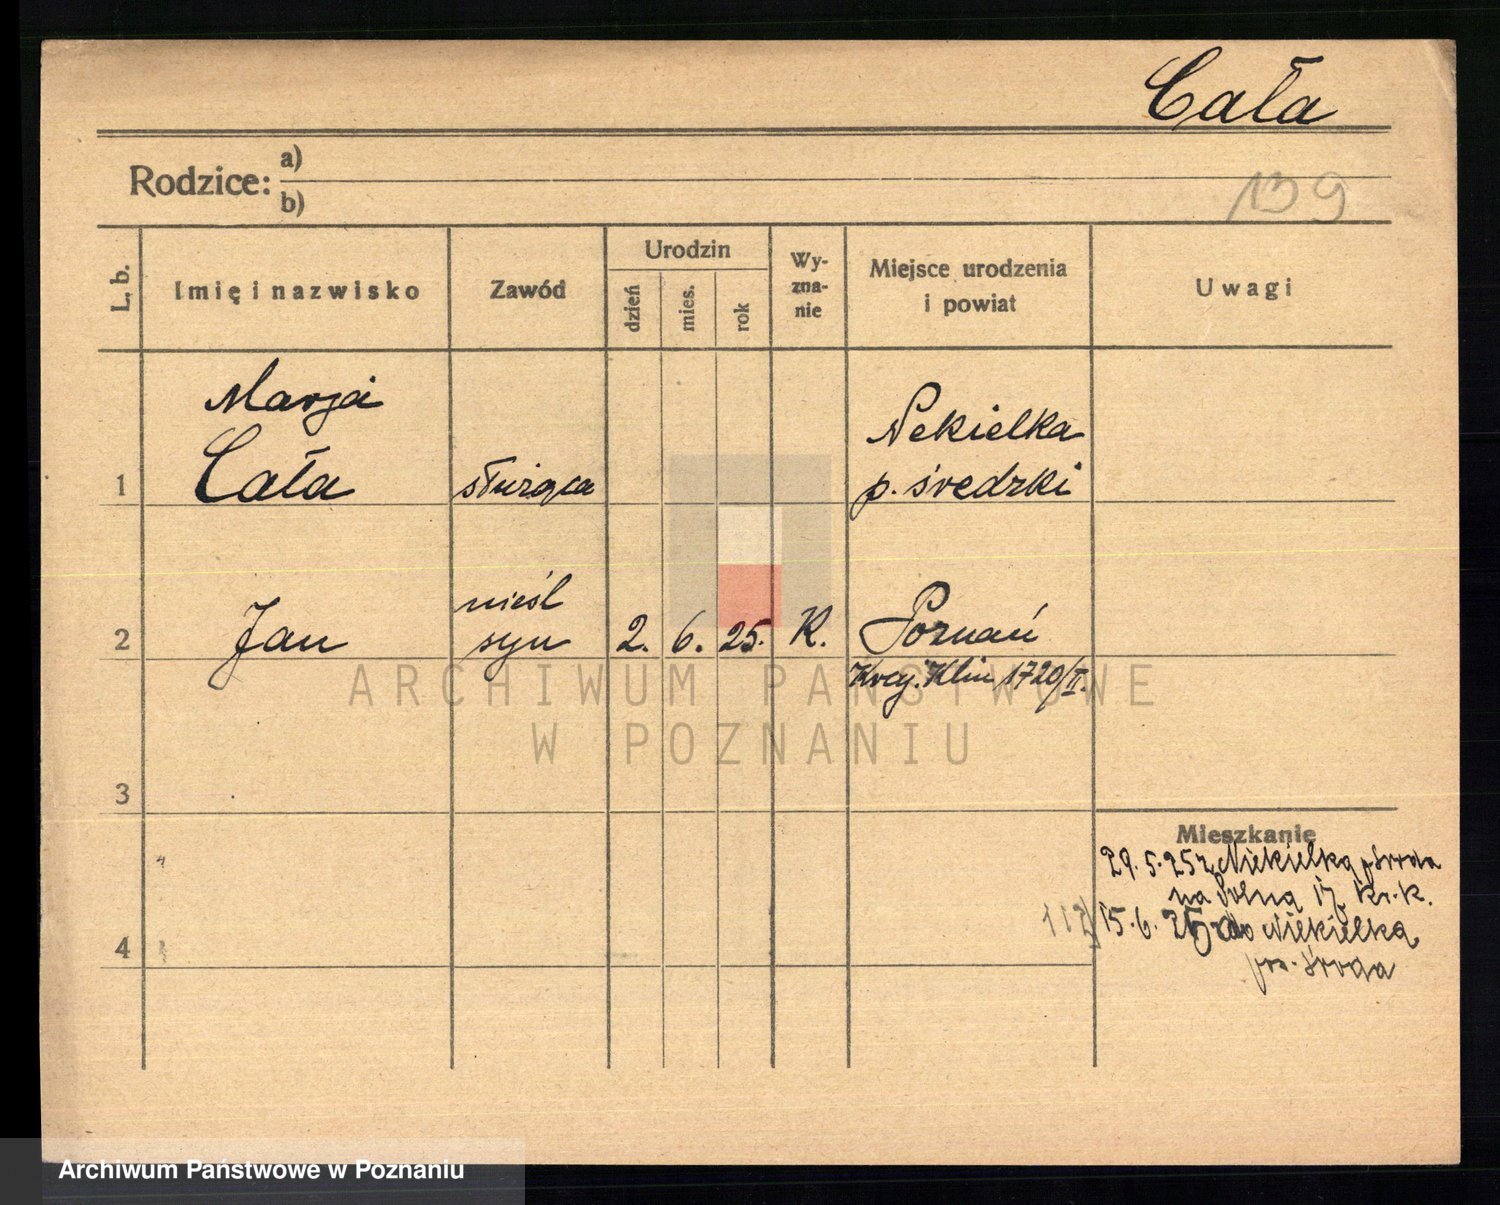 Cała
Rodzice: a)
b)
139
L. b.
Imię i nazwisko
Zawód
Urodzin
dzień
mies.
rok
Wy-
zna-
nie
Miejsce urodzenia
i powiat
Uwagi
Marja
Cała
Nekielka
1
służąca
p. średzki
nieśl
2
Jan
syn
2. 6. 25.
K.
Poznań
Kraj. Klin 1720/II.
ARCHIWUM PAŃSTWOWE
W POZNANIU
3
Mieszkanie
29. 5. 25 z Niekielką p Środa
na Solną 17 kr. k.
15. 6. 25 do Niekielką
pow. Środa
4
Archiwum Państwowe w Poznaniu